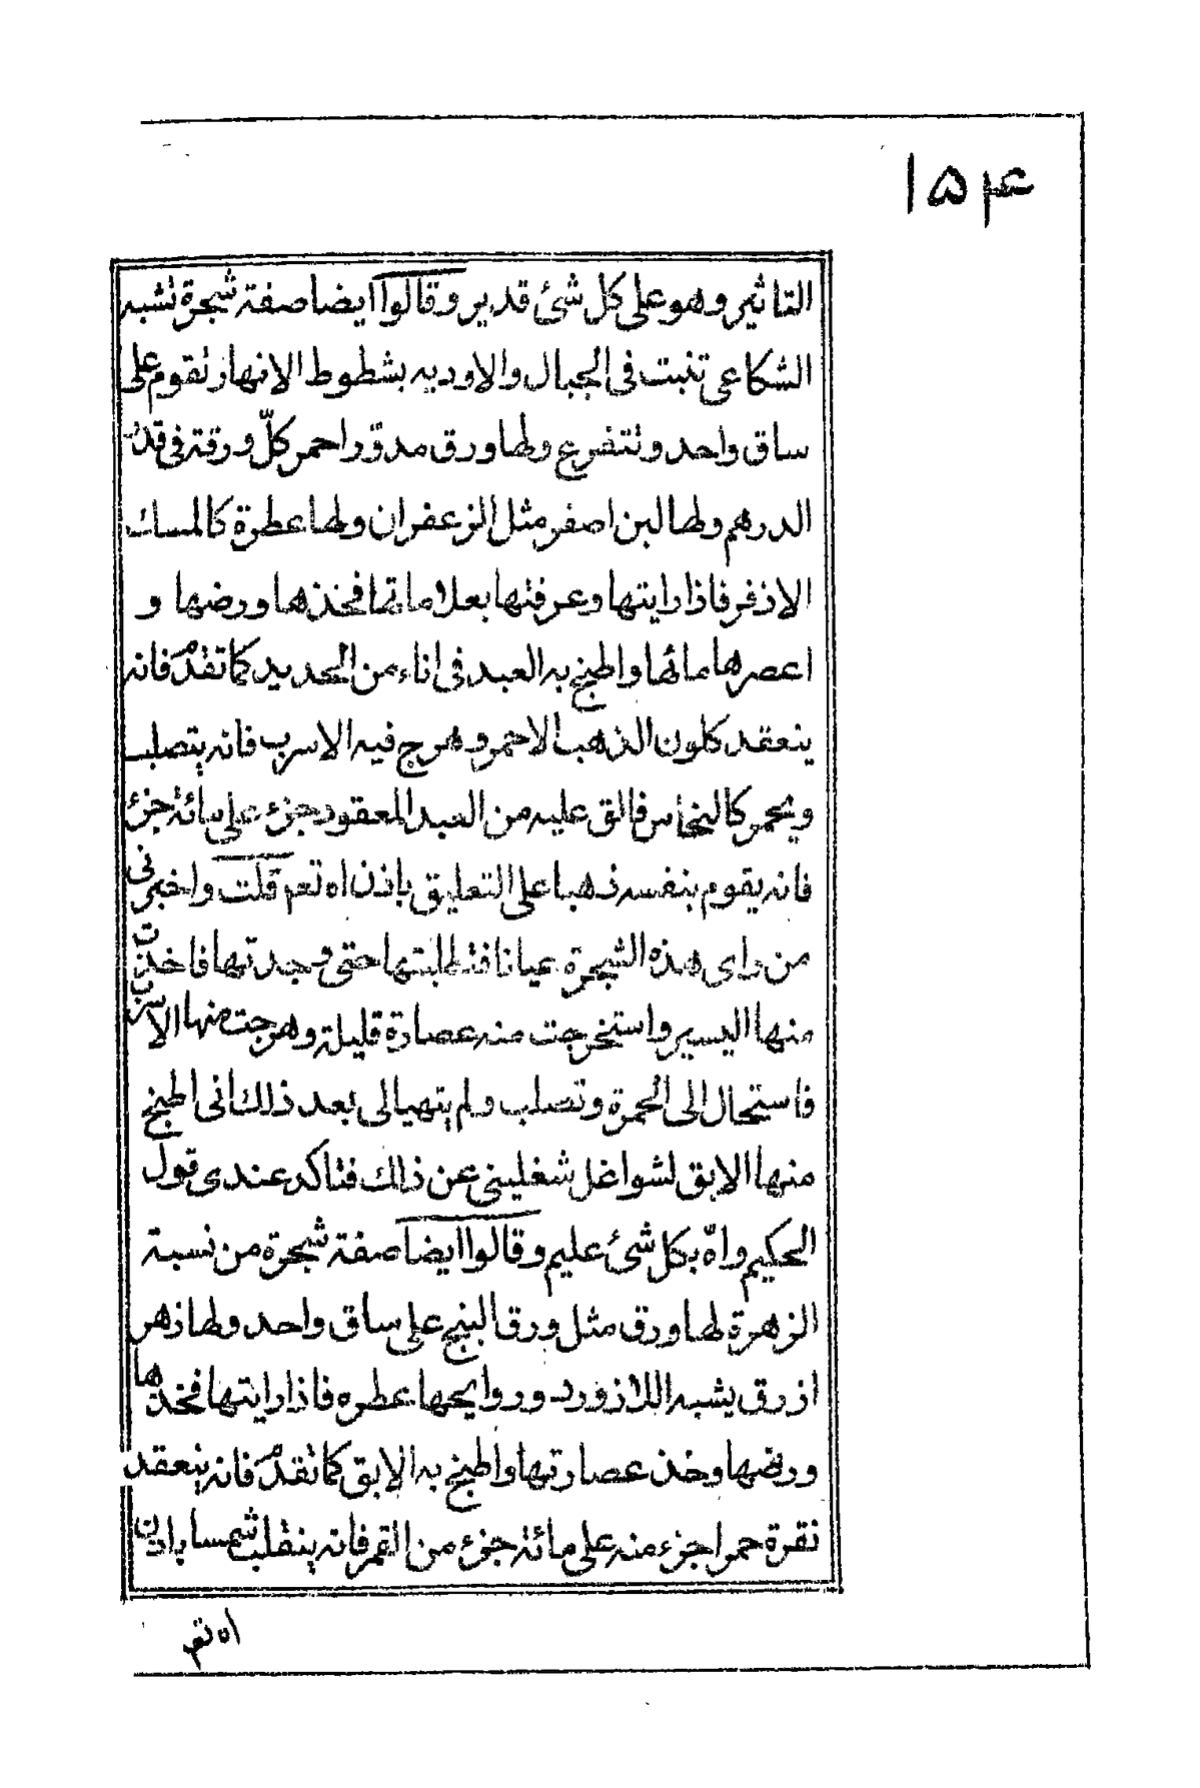 ١۵۴
التاثير وهو على كل شئ قدير وقالوا ايضا صفة شجرة تشبه
الشكاعى تنبت فى الجبال والاوديه بشطوط الانهار تقوم على
ساق واحد وتتفرع ولها ورق مدوّر احمر كلّ ورقة فى قدر
الدرهم ولها لبن اصفر مثل الزعفران ولها عطرة كالمسك
الاذفر فاذا رايتها وعرفتها بعلاماتها فخذها ورضها و
اعصرها مائها واطبخ به العبد فى اناء من الحديد كما تقدم فانه
ينعقد كلون الذهب الاحمر وهرج فيه الاسرب فانه يتصلب
ويحمر كالنحاس فالق عليه من العبد المعقود جزء على مائة جزئ
فانه يقوم بنفسه ذهبا على التعليق باذن اه تعم قلت واخبرنى
من راى هذه الشجرة عيانا فتطلبتها حتى وجدتها فاخذت
منها اليسير واستخرجت منه عصارة قليلة وهرجت منها الاسرب
فاستحال الى الحمرة وتصلب ولم يتهيا لى بعد ذلك انى اطبخ
منها الابق لشواغل شغليني عن ذلك فتاكد عندى قول
الحكيم واه بكل شئ عليم وقالوا ايضا صفة شجرة من نسبة
الزهرة لها ورق مثل ورق البنج على ساق واحد ولها زهر
ازرق يشبه اللازورد وروايحها عطره فاذا رايتها فخذها
ورضها وخذ عصارتها واطبخ به الابق كما تقدم فانه ينعقد
نقرة حمرا جزء منه على مائة جزء من القمر فانه ينقلب شمسا باذن
اه تعم